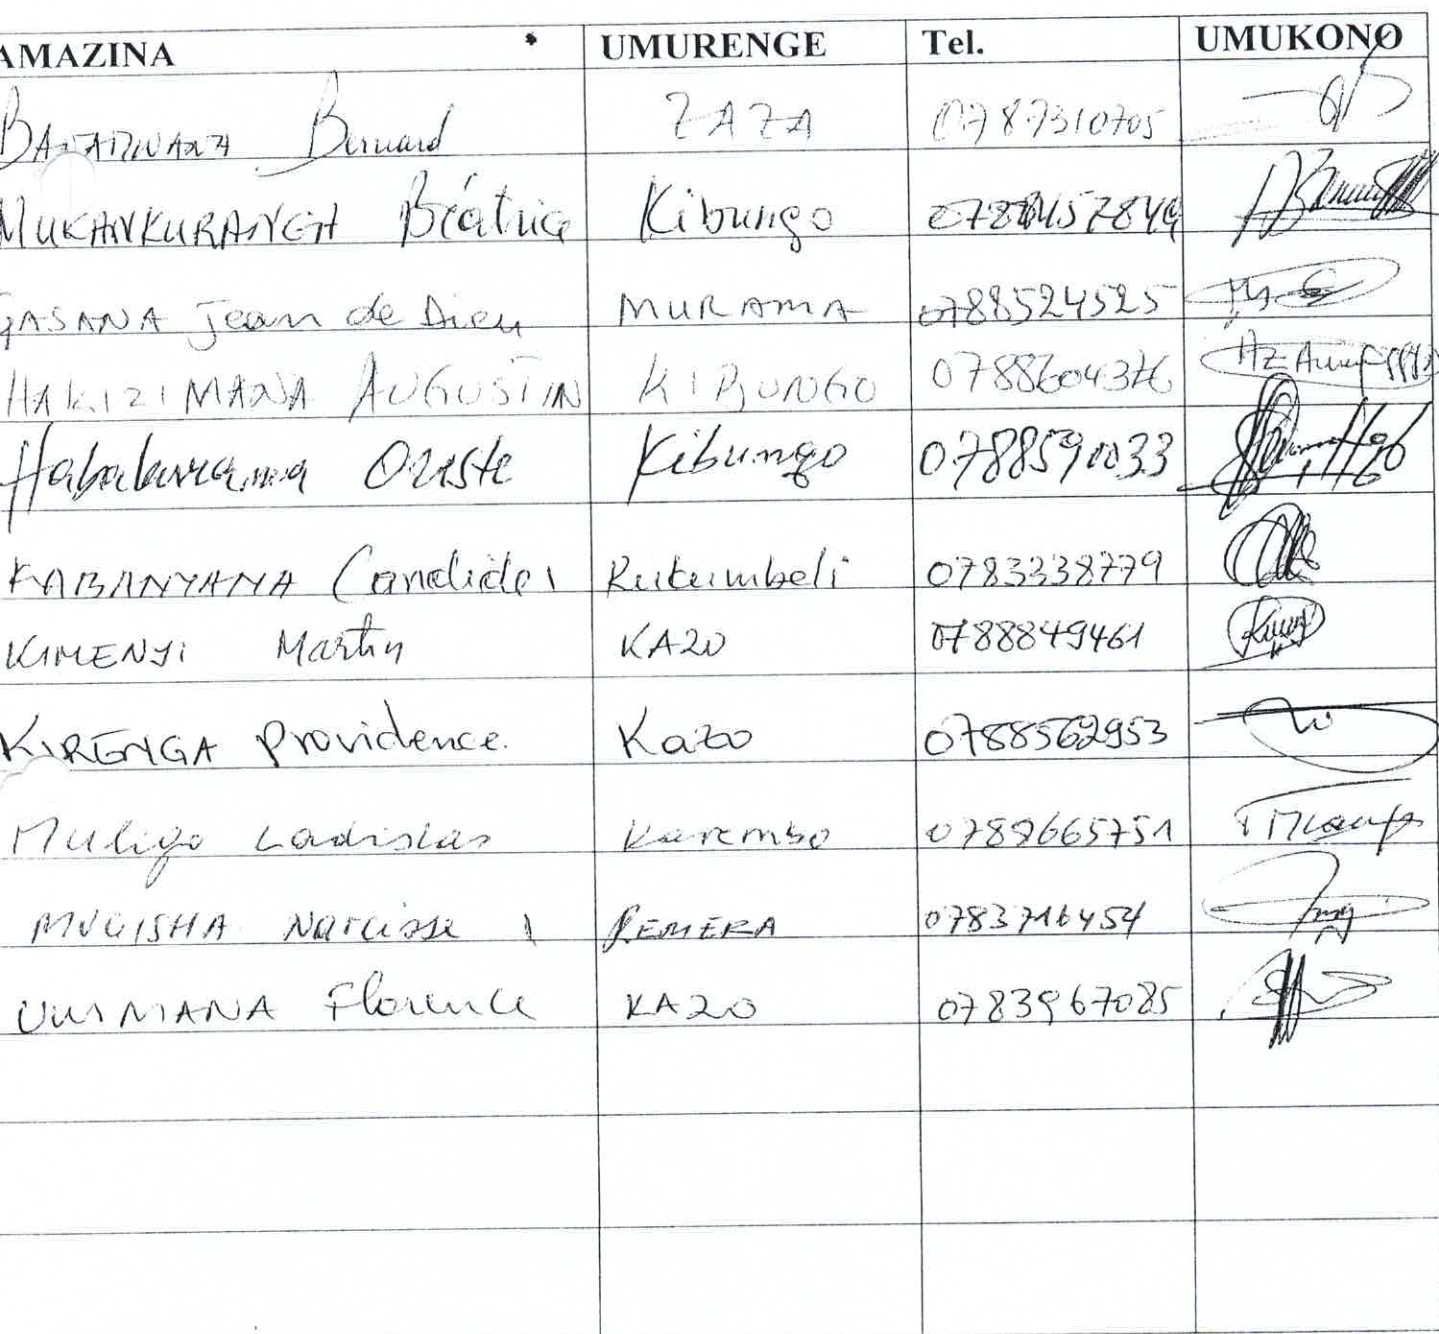 AMAZINA UMURENGE Tel. UMUKONO
Bernard ZAZA 0787310705
MUKANKURANGA Béatrice Kibungo
GASANA Jean de Dieu MURAMA 0788524525
HAKIZIMANA AUGUSTIN KIBUNGO 0788604376
Habakurama Oreste Kibungo 0788590033
KABANYANA Candide Rukumbeli 0783338779
KIMENYI Martin KAZO 0788849461
KIRENGA Providence. Kazo 0788562953
Muligo Ladislas Karembo 0788665751
MUGISHA Narcisse REMERA 0783716454
UWIMANA Florence KAZO 0783967085